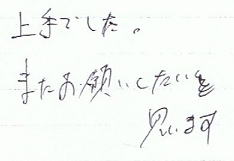 上手でした。
またお願いしたいと
思います